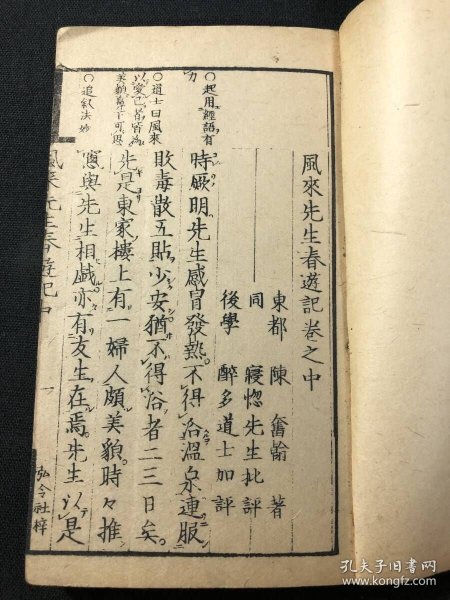 風來先生春遊記卷之中
東都 陳 奮翰 著
同 寢惚先生批評
後學 醉多道士加評
時厥明先生感冒發熱不得浴溫泉連服
敗毒散五貼少安猶不得浴者二三日矣
先是東家樓上有一婦人頗美貌時々推
窓與先生相戲亦有友生在焉先生以是
○起用經語有力
○道士曰風來
○追叙法妙
風來先生春遊記中
一
弘令社梓
孔夫子旧书网
www.kongfz.com